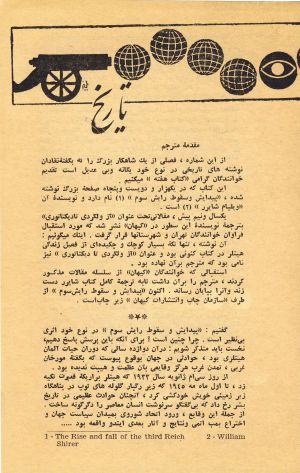 تاریخ
مقدمه مترجم
از این شماره ، فصلی از یك شاهکار بزرگ را که بگفته نقادان
نوشته های تاریخی در نوع خود یگانه وبی عدیل است تقدیم
خوانندگان گرامی «کتاب هفته» میکنیم .
این کتاب که در یکهزار و دویست وپنجاه صفحه بزرگ نوشته
شده ، «پیدایش وسقوط رایش سوم» (۱) نام دارد و نویسنده آن
«ویلیام شایرر» (۲) است .
یکسال ونیم پیش ، مقالاتی تحت عنوان «از ولگردی تا دیکتاتوری»
بترجمه نویسنده این سطور در «کیهان» نشر شد که مورد استقبال
فراوان خوانندگان تهران و شهرستانها قرار گرفت . اینك میگوئیم :
آن نوشته ، تنها تکهٔ بسیار کوچك و چکیده‌ای از فصل زندگی
هیتلر در کتاب کنونی بود و عنوان «از ولگردی تا دیکتاتوری» نیز
نامی بود که مترجم بر آن نهاده بود .
استقبالی که خوانندگان «کیهان» از سلسله مقالات مذکور
کردند ، مترجم را بر آن داشت تا به ترجمه کامل کتاب شایرر دست
زند و آنرا بپایان رساند . اکنون «پیدایش و سقوط رایش سوم» از
طرف «سازمان چاپ وانتشارات کیهان» زیر چاپ است .
***
گفتیم : «پیدایش و سقوط رایش سوم» در نوع خود اثری
بی‌نظیر است . چرا چنین است ؟ برای آنکه باین پرسش پاسخ دهیم،
نخست باید متذکر شویم : در دوازده سالی که دوران حیات آلمان
هیتلری بود ، حوادثی در جهان بوقوع پیوست که بگفته مورخان
غربی ، تمدن غرب هرگز وقایعی بآن عظمت و هیبت ندیده بود .
از روز سی‌ام ژانویه سال ۱۹۳۳ که هیتلر بر اریکهٔ قدرت تکیه
زد ، تا اول ماه مه ۱۹۴۵ که زیر رگبار گلوله های توپ در پناهگاه
زیر زمینی خویش خودکشی کرد ، آنچنان حوادث عظیمی در تاریخ
بشر رخ داد که بی‌گفتگو سرنوشت انسان معاصر را دگرگونه ساخت .
از جمله این وقایع ، ورود اتحاد شوروی بمیدان سیاست جهان و
اختراع بمب اتمی ونتایج و آثار بعدی ایندو واقعه بود .....
1 - The Rise and fall of the third Reich 2 - William
Shirer